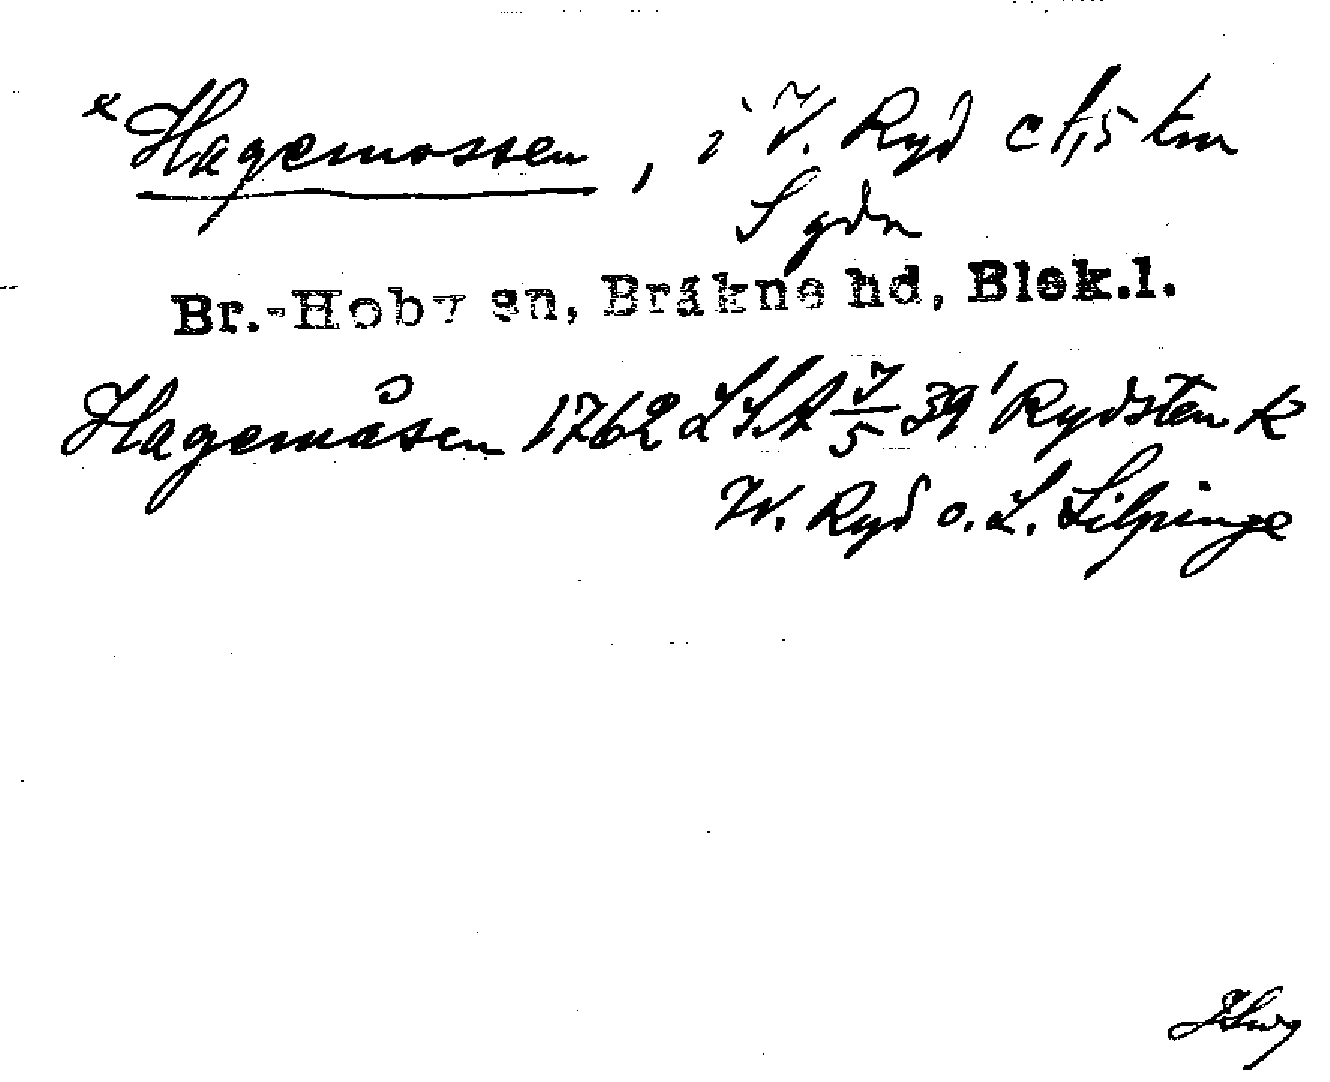 *Hagemossen, i V. Ryd c 1,5 km
S gdn
Br.-Hoby sn, Bräkne hd, Blek.l.
Hagemåsen 1762 LSA 7/5 39¹ Rydsten k
W. Ryd o. L. Silpinge